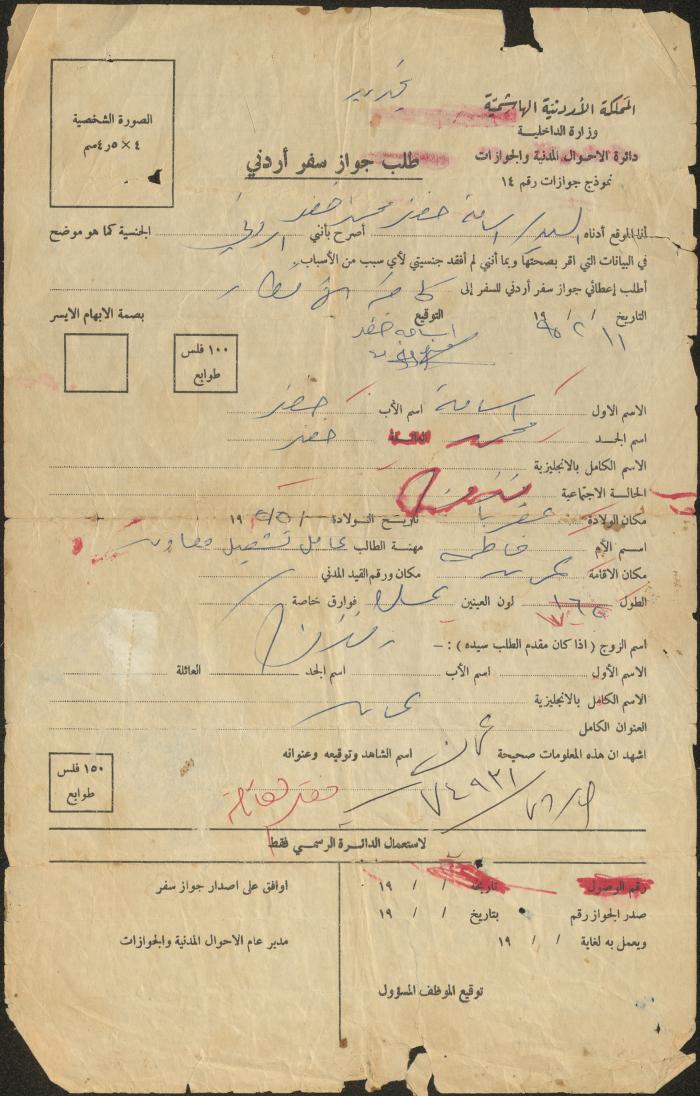 تجديد
المملكة الأردنية الهاشمية
وزارة الداخلية
دائرة الاحوال المدنية والجوازات
نموذج جوازات رقم ١٤
الصورة الشخصية
٤ × ٥ر٤سم
طلب جواز سفر أردني
أنا الموقع أدناه السيد / اسامة خضر محمد خضر أصرح بأنني اردني الجنسية كما هو موضح
في البيانات التي اقر بصحتها وبما أنني لم أفقد جنسيتي لأي سبب من الأسباب
أطلب إعطائي جواز سفر أردني للسفر إلى كافة الاقطار
التاريخ ١١ / ٢ / ١٩ التوقيع بصمة الابهام الايسر
اسامه خضر
١٠٠ فلس
طوابع
الاسم الاول اسامة اسم الأب خضر
اسم الجد محمد العائلة خضر
الاسم الكامل بالانجليزية
الحالة الاجتماعية
مكان الولادة عقربا تاريخ الولادة / / ١٩
اسم الأم فاطمة مهنة الطالب عامل
مكان الاقامة مكان ورقم القيد المدني
الطول ١٦٥ لون العينين عسلي فوارق خاصة
اسم الزوج ( اذا كان مقدم الطلب سيده ) : –
الاسم الأول اسم الأب اسم الجد العائلة
الاسم الكامل بالانجليزية
العنوان الكامل
اشهد ان هذه المعلومات صحيحة اسم الشاهد وتوقيعه وعنوانه
عمان
٧٤٩٢١
١٥٠ فلس
طوابع
لاستعمال الدائرة الرسمي فقط
رقم الوصول تاريخ / / ١٩ اوافق على اصدار جواز سفر
صدر الجواز رقم بتاريخ / / ١٩
ويعمل به لغاية / / ١٩ مدير عام الاحوال المدنية والجوازات
توقيع الموظف المسؤول